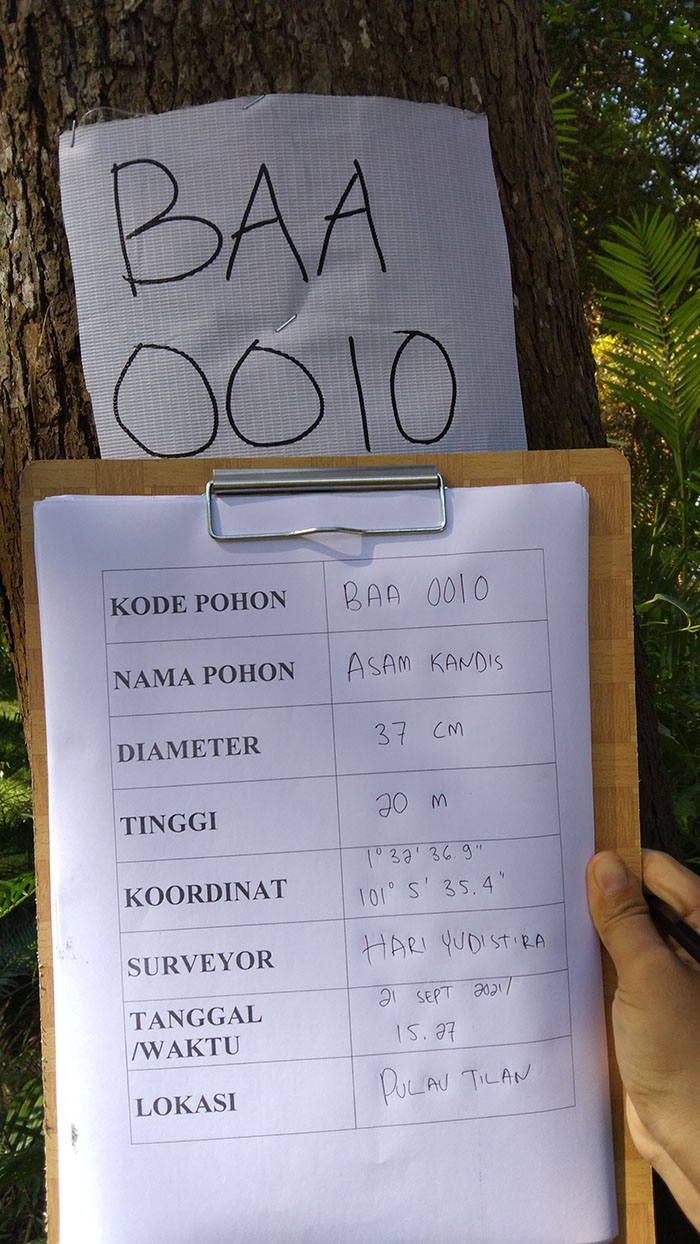 BAA
0010
KODE POHON BAA 0010
NAMA POHON ASAM KANDIS
DIAMETER 37 CM
TINGGI 20 M
1° 32' 36.9"
KOORDINAT 101° 5' 35.4"
SURVEYOR HARI YUDISTIRA
TANGGAL 21 SEPT 2021/
/WAKTU 15.27
LOKASI PULAU TILAN